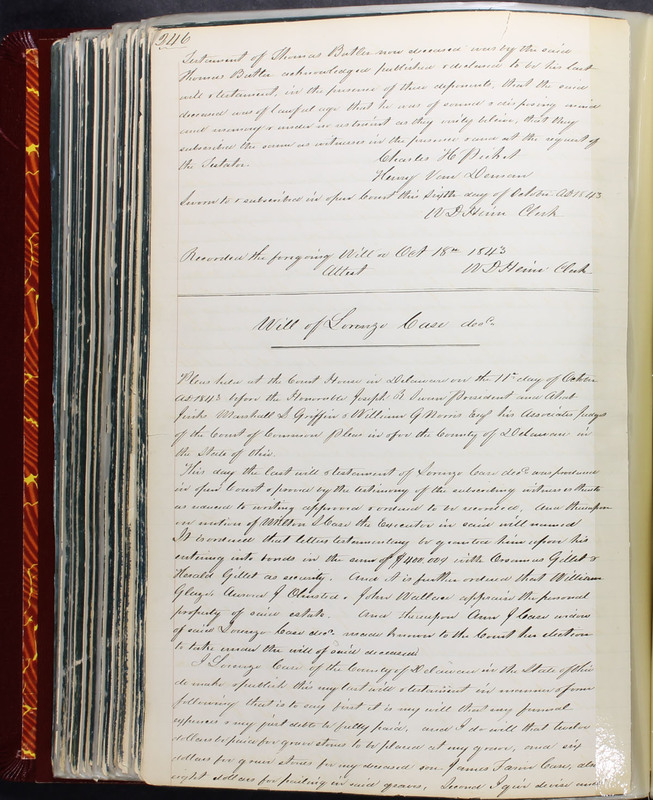 346
Testament of Thomas Butler now deceased was by the said
Thomas Butler acknowledged published & declared to be his last
will & testament, in the presence of these deponents, that the said
deceased was of lawful age that he was of sound & disposing mind
and memory & under no restraint as they verily believe, that they
subscribed the same as witnesses in the presence & and at the request of
the Testator.
Charles H Picket
Henry Van Deman
Sworn to & subscribed in open Court this Sixth day of October AD 1843
W D Heim Clerk
Recorded the foregoing Will on Oct 18th 1843
Attest W D Heim Clerk
Will of Lorenzo Case decd
Pleas held at the Court House in Delaware on the 11th day of October
AD 1843 before the Honorable Joseph R Swan President and Ahab
Jinks Marshall L Griffin & William G Norris Esqs his Associates Judges
of the Court of Common Pleas in & for the County of Delaware in
the State of Ohio.
This day the last will & testament of Lorenzo Case decd was produced
in open Court & proved by the testimony of the subscribing witnesses thereto
as reduced to writing approved & ordered to be recorded, And thereupon
on motion of Case the Executor in said will named
It is ordered that letters testamentary be granted him upon his
entering into bonds in the sum of $400.00 with Gillet &
Gillet as security. And it is further ordered that William
Aurora J Olmsted & John Wallace appraise the personal
property of said estate. And thereupon Ann J Case widow
of said Lorenzo Case decd made known to the Court her election
to take under the will of said deceased
I Lorenzo Case of the County of Delaware in the State of Ohio
do make & publish this my last will & testament in manner & form
following that is to say first it is my will that my funeral
expences & my just debts be fully paid, and I do will that twelve
dollars be paid for grave stones to be placed at my grave, and six
dollars for grave stones for my deceased son James Case, also
eight dollars for in said graves, Second I give devise and